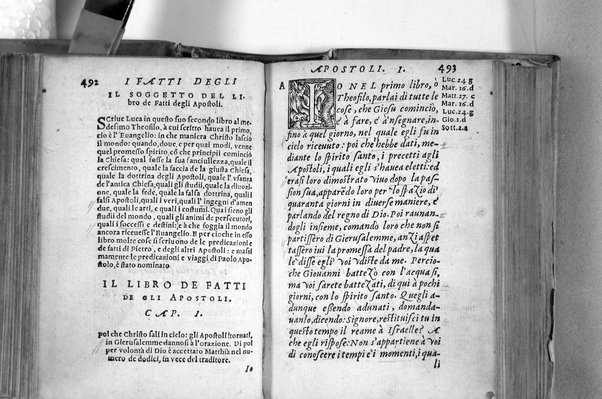 492 I FATTI DEGLI
IL SOGGETTO DEL LI-
bro de Fatti degli Apostoli.
Scriue Luca in questo suo secondo libro al me-
desimo Theofilo, à cui scritto hauea il primo,
cio è l'Euangelio: in che maniera Christo lasciò
il mondo: quando, doue, e per quai modi, venne
quel promesso spirito, e cō che principi cominciò
la Chiesa: qual fosse la sua fanciullezza, quale il
crescimento, quale la faccia de la giusta Chiesa,
quale la dottrina degli Apostoli, quale l'vsanza
de l'antica Chiesa, quali gli studi, quale la diuotio-
ne, quale la fede, quale la falsa dottrina, quali i
falsi Apostoli, quali i veri, quali l'ingegni d'amen
due, quali le arti, e quali i costumi. Quai sieno gli
studi del mondo, quali gli animi de persecutori,
quali i successi e destini: e à che foggia il mondo
ancora riceuesse l'Euangelio. E per cioche in esso
libro molte cose si scriuono de le predicazioni e
de fatti di Pietro, e degli altri Apostoli: e massi
mamente le predicazioni e viaggi di Paolo Apo-
stolo, è stato nominato
IL LIBRO DE FATTI
DE GLI APOSTOLI.
CAP. I.
poi che Christo salì in cielo: gli Apostoli tornati,
in Gierusalemme viannosi à l'orazione. Di poi
per volontà di Dio è accettato Matthia nel nu-
mero de dodici, in vece del traditore.
Io
APOSTOLI. I. 493
A IO NEL primo libro, ò
Theofilo, parlai di tutte le
cose, che Giesu cominciò,
è à fare, e à 'nsegnare, in-
fino a quel giorno, nel quale egli fu in
cielo riceuuto: poi che hebbe dati, me-
diante lo spirito santo, i precetti agli
Apostoli, i quali egli s'hauea eletti: ed
erasi loro dimostrato viuo dopo la pas
sion sua, apparēdo loro per lo spazio di
quaranta giorni in diuerse maniere, e
parlando del regno di Dio. Poi raunan-
dogli insieme, comando loro che non si
partissero di Gierusalemme, anzi aspet
tassero iui la promessa del padre, la qua
le disse egli voi vdiste da me. Percio-
che Giouanni battezò con l'acqua sì,
ma voi sarete battezati, di quì à pochi
giorni, con lo spirito santo. Quegli a-
dunque essendo adunati, domanda-
uanlo, dicendo: Signore, restituisci tu in
questo tempo il reame à Israelle? A
che egli rispose: Non s'appartiene à voi
di conoscere i tempi e i momenti, i qua
li
Luc. 24. g
Mar. 16. d
Matt. 27. c
Mar. 16. d
Luc. 24. g
Gio. 1. d
Sott. 2. a